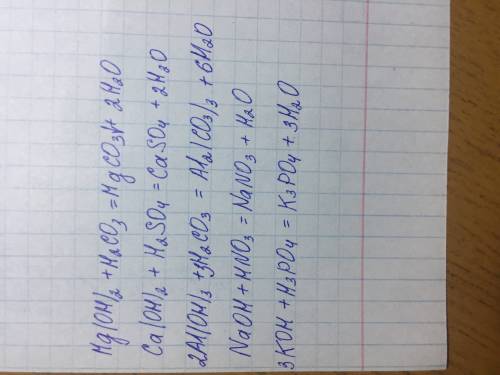 Mg(OH)₂ + H₂CO₃ = MgCO₃↓ + 2H₂O
Ca(OH)₂ + H₂SO₄ = CaSO₄ + 2H₂O
2Al(OH)₃ + 3H₂CO₃ = Al₂(CO₃)₃ + 6H₂O
NaOH + HNO₃ = NaNO₃ + H₂O
3KOH + H₃PO₄ = K₃PO₄ + 3H₂O